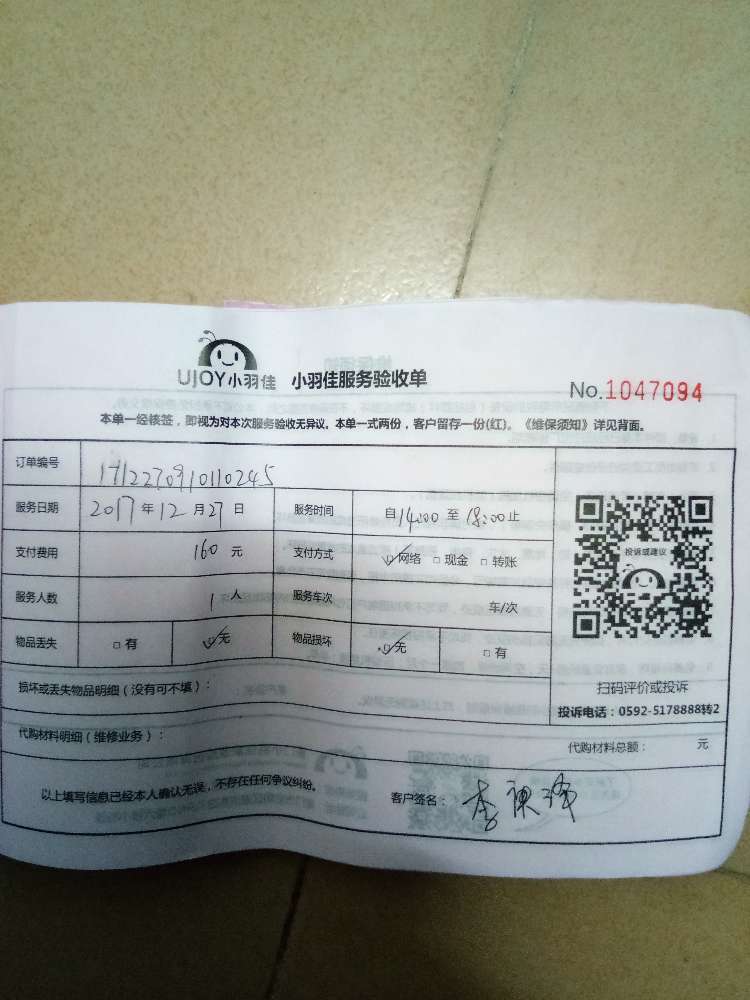 UJOY小羽佳 小羽佳服务验收单
No.1047094
本单一经核签，即视为对本次服务验收无异议。本单一式两份，客户留存一份(红)。《维保须知》详见背面。
订单编号 1712270910110245
服务日期 2017年12月27日 服务时间 自14:00至18:00止
支付费用 160元 支付方式 网络 现金 转账
投诉或建议
服务人数 1人 服务车次 车/次
物品丢失 有 无 物品损坏 无 有
损坏或丢失物品明细（没有可不填）：
扫码评价或投诉
投诉电话：0592-5178888转2
代购材料明细（维修业务）： 代购材料总额： 元
以上填写信息已经本人确认无误，不存在任何争议纠纷。 客户签名： 李